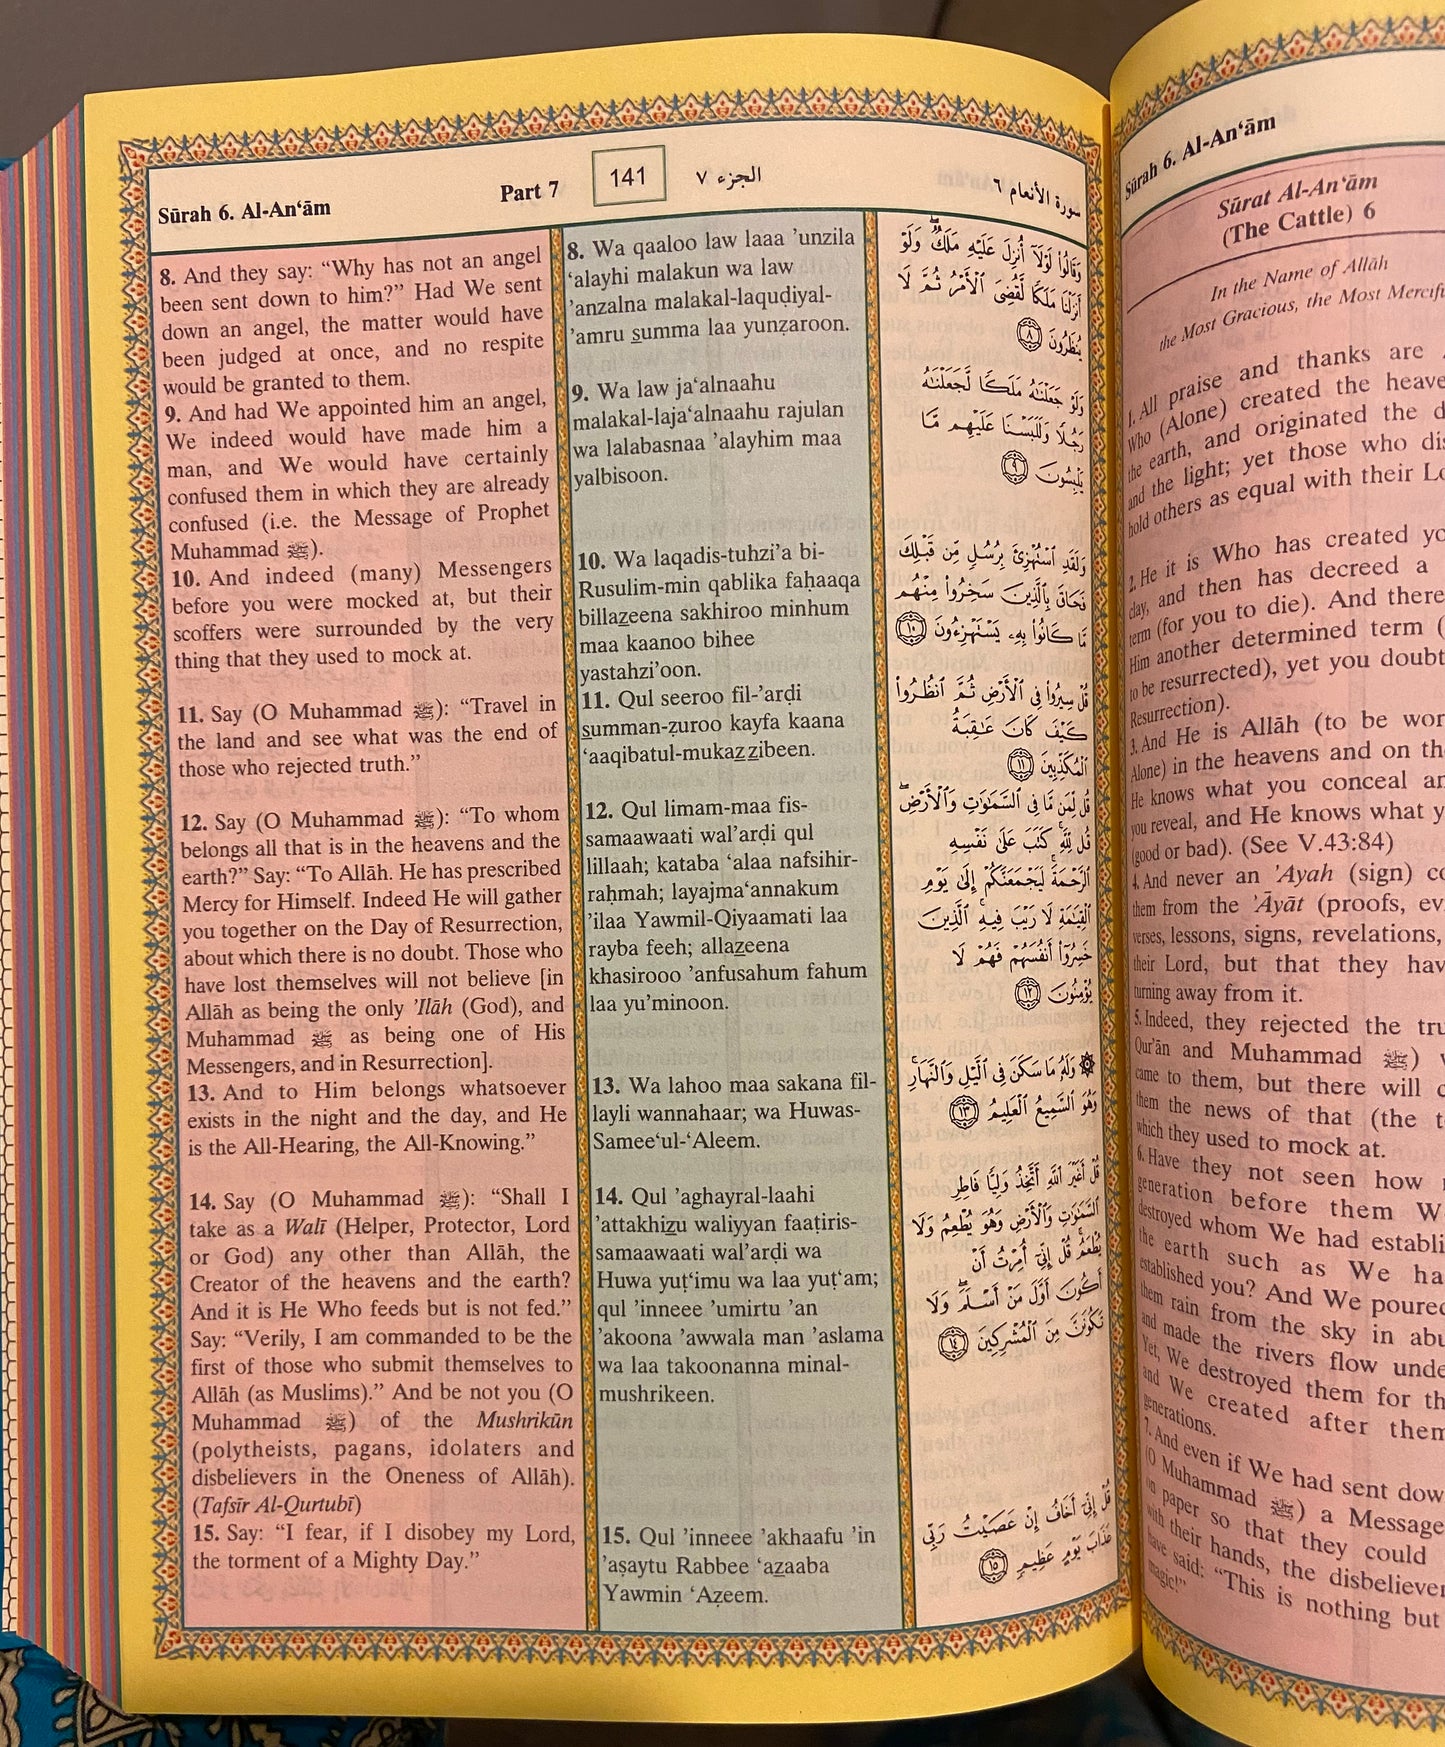 Sūrah 6. Al-An‘ām
Part 7
141
الجزء ٧
سورة الأنعام ٦
8. And they say: “Why has not an angel
been sent down to him?” Had We sent
down an angel, the matter would have
been judged at once, and no respite
would be granted to them.
9. And had We appointed him an angel,
We indeed would have made him a
man, and We would have certainly
confused them in which they are already
confused (i.e. the Message of Prophet
Muhammad ﷺ).
10. And indeed (many) Messengers
before you were mocked at, but their
scoffers were surrounded by the very
thing that they used to mock at.
11. Say (O Muhammad ﷺ): “Travel in
the land and see what was the end of
those who rejected truth.”
12. Say (O Muhammad ﷺ): “To whom
belongs all that is in the heavens and the
earth?” Say: “To Allāh. He has prescribed
Mercy for Himself. Indeed He will gather
you together on the Day of Resurrection,
about which there is no doubt. Those who
have lost themselves will not believe [in
Allāh as being the only ’Ilāh (God), and
Muhammad ﷺ as being one of His
Messengers, and in Resurrection].
13. And to Him belongs whatsoever
exists in the night and the day, and He
is the All-Hearing, the All-Knowing.”
14. Say (O Muhammad ﷺ): “Shall I
take as a Walī (Helper, Protector, Lord
or God) any other than Allāh, the
Creator of the heavens and the earth?
And it is He Who feeds but is not fed.”
Say: “Verily, I am commanded to be the
first of those who submit themselves to
Allāh (as Muslims).” And be not you (O
Muhammad ﷺ) of the Mushrikūn
(polytheists, pagans, idolaters and
disbelievers in the Oneness of Allāh).
(Tafsīr Al-Qurtubī)
15. Say: “I fear, if I disobey my Lord,
the torment of a Mighty Day.”
8. Wa qaaloo law laaa ’unzila
‘alayhi malakun wa law
’anzalna malakal-laquḍiyal-
’amru summa laa yunẓaroon.
9. Wa law ja‘alnaahu
malakal-laja‘alnaahu rajulan
wa lalabasnaa ’alayhim maa
yalbisoon.
10. Wa laqadis-tuhzi’a bi-
Rusulim-min qablika faḥaaqa
billazeena sakhiroo minhum
maa kaanoo bihee
yastahzi’oon.
11. Qul seeroo fil-’arḍi
summan-ẓuroo kayfa kaana
‘aaqibatul-mukazzibeen.
12. Qul limam-maa fis-
samaawaati wal’arḍi qul
lillaah; kataba ‘alaa nafsihir-
raḥmah; layajma‘annakum
’ilaa Yawmil-Qiyaamati laa
rayba feeh; allazeena
khasirooo ’anfusahum fahum
laa yu’minoon.
13. Wa lahoo maa sakana fil-
layli wannahaar; wa Huwas-
Samee‘ul-‘Aleem.
14. Qul ’aghayral-laahi
’attakhizu waliyyan faaṭiris-
samaawaati wal’arḍi wa
Huwa yuṭ‘imu wa laa yuṭ‘am;
qul ’inneee ’umirtu ’an
’akoona ’awwala man ’aslama
wa laa takoonanna minal-
mushrikeen.
15. Qul ’inneee ’akhaafu ’in
’aṣaytu Rabbee ‘azaaba
Yawmin ‘Aẓeem.
وَقَالُوا۟ لَوْلَآ أُنزِلَ عَلَيْهِ مَلَكٌ ۖ وَلَوْ
أَنزَلْنَا مَلَكًا لَّقُضِىَ ٱلْأَمْرُ ثُمَّ لَا
يُنظَرُونَ ٨
وَلَوْ جَعَلْنَـٰهُ مَلَكًا لَّجَعَلْنَـٰهُ
رَجُلًا وَلَلَبَسْنَا عَلَيْهِم مَّا
يَلْبِسُونَ ٩
وَلَقَدِ ٱسْتُهْزِئَ بِرُسُلٍ مِّن قَبْلِكَ
فَحَاقَ بِٱلَّذِينَ سَخِرُوا۟ مِنْهُم
مَّا كَانُوا۟ بِهِۦ يَسْتَهْزِءُونَ ١٠
قُلْ سِيرُوا۟ فِى ٱلْأَرْضِ ثُمَّ ٱنظُرُوا۟
كَيْفَ كَانَ عَـٰقِبَةُ
ٱلْمُكَذِّبِينَ ١١
قُل لِّمَن مَّا فِى ٱلسَّمَـٰوَٰتِ وَٱلْأَرْضِ ۖ
قُل لِّلَّهِ ۚ كَتَبَ عَلَىٰ نَفْسِهِ
ٱلرَّحْمَةَ ۚ لَيَجْمَعَنَّكُمْ إِلَىٰ يَوْمِ
ٱلْقِيَـٰمَةِ لَا رَيْبَ فِيهِ ۚ ٱلَّذِينَ
خَسِرُوٓا۟ أَنفُسَهُمْ فَهُمْ لَا
يُؤْمِنُونَ ١٢
۞ وَلَهُۥ مَا سَكَنَ فِى ٱلَّيْلِ وَٱلنَّهَارِ ۚ
وَهُوَ ٱلسَّمِيعُ ٱلْعَلِيمُ ١٣
قُلْ أَغَيْرَ ٱللَّهِ أَتَّخِذُ وَلِيًّا فَاطِرِ
ٱلسَّمَـٰوَٰتِ وَٱلْأَرْضِ وَهُوَ يُطْعِمُ وَلَا
يُطْعَمُ ۗ قُلْ إِنِّىٓ أُمِرْتُ أَنْ
أَكُونَ أَوَّلَ مَنْ أَسْلَمَ ۖ وَلَا
تَكُونَنَّ مِنَ ٱلْمُشْرِكِينَ ١٤
قُلْ إِنِّىٓ أَخَافُ إِنْ عَصَيْتُ رَبِّى
عَذَابَ يَوْمٍ عَظِيمٍ ١٥
Sūrah 6. Al-An‘ām
Sūrat Al-An‘ām
(The Cattle) 6
In the Name of Allāh
the Most Gracious, the Most
1. All praise and thanks are
Who (Alone) created the
the earth, and originated the
and the light; yet those who
hold others as equal with their
2. He it is Who has created
clay, and then has decreed a
term (for you to die). And there
Him another determined term (
to be resurrected), yet you doubt
Resurrection).
3. And He is Allāh (to be
Alone) in the heavens and on
He knows what you conceal
you reveal, and He knows what
(good or bad). (See V.43:84)
4. And never an ’Ayah (sign)
them from the ’Āyāt (proofs,
verses, lessons, signs, revelations,
their Lord, but that they
turning away from it.
5. Indeed, they rejected the
Qur’ān and Muhammad ﷺ)
came to them, but there will
them the news of that (the
which they used to mock at.
6. Have they not seen how
generation before them
destroyed whom We had
the earth such as We
established you? And We poured
them rain from the sky in
and made the rivers flow
Yet, We destroyed them for
and We created after them
generations.
7. And even if We had sent
(O Muhammad ﷺ) a Message
on paper so that they could
with their hands, the
have said: “This is nothing but
magic!”